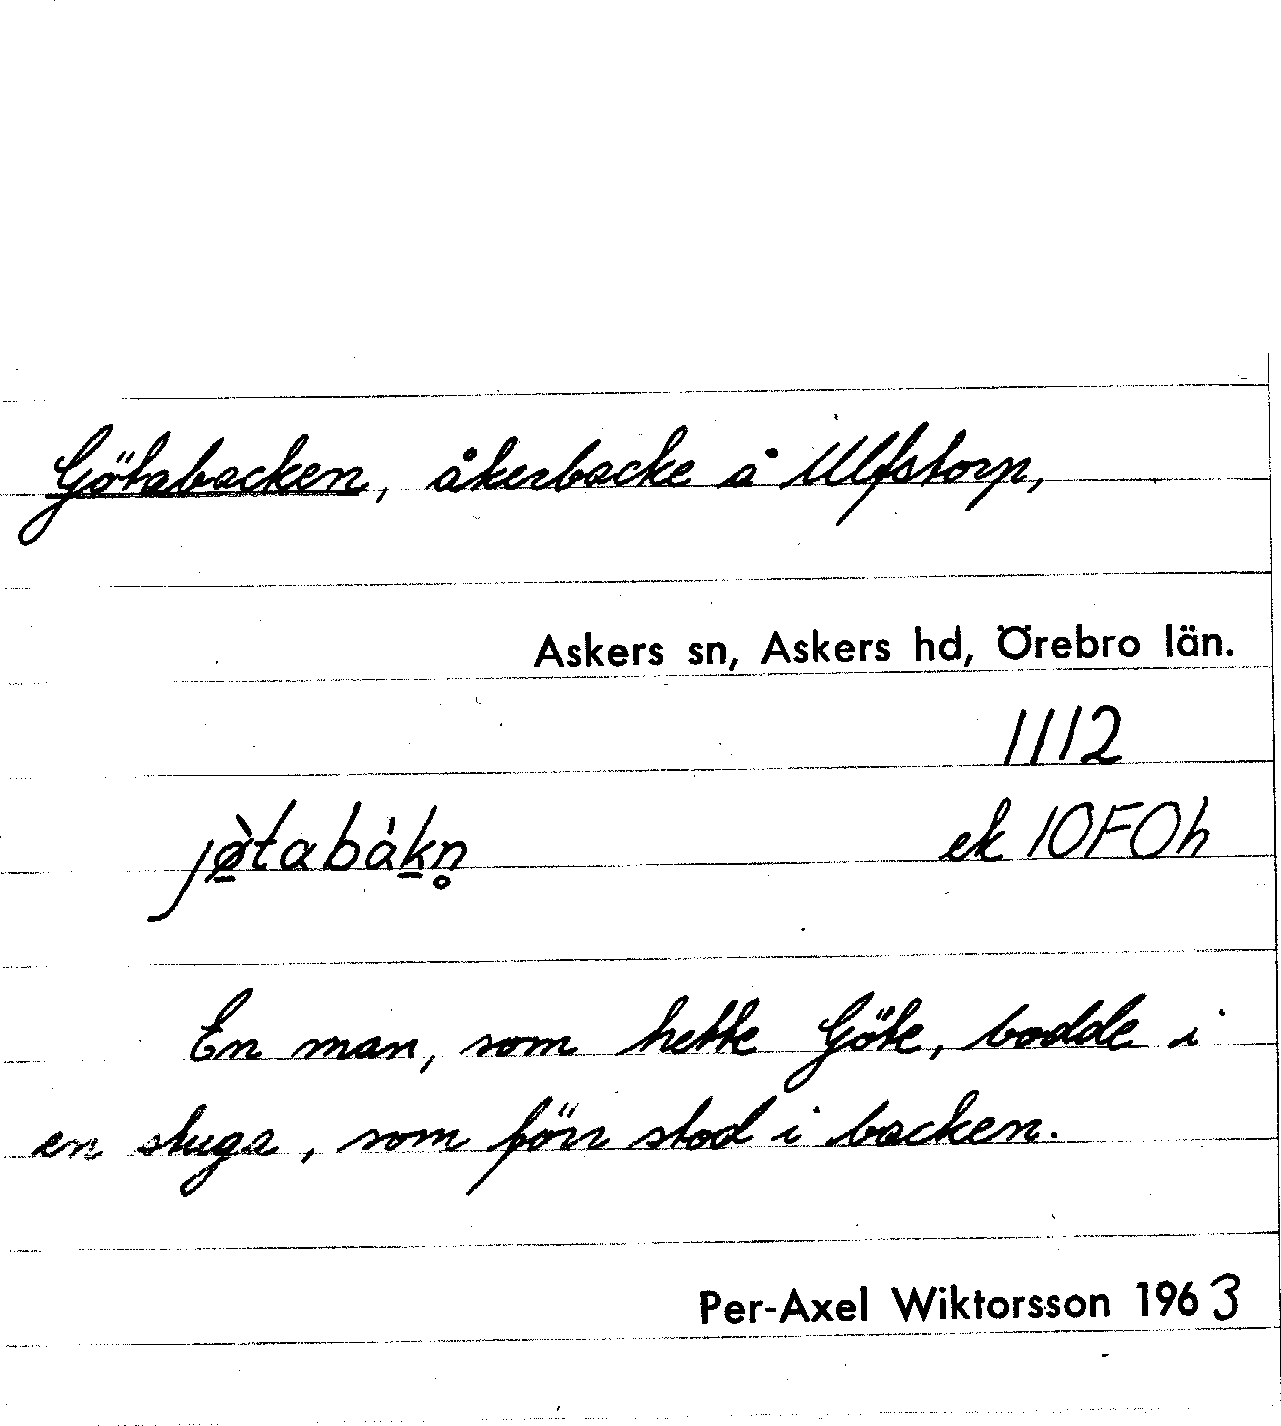 Götabacken, åkerbacke å Ulfstorp,
Askers sn, Askers hd, Örebro län.
1112
jø̀tabákn̥ ek 10F0h
En man, som hette Göte, bodde i
en stuga, som förr stod i backen.
Per-Axel Wiktorsson 1963